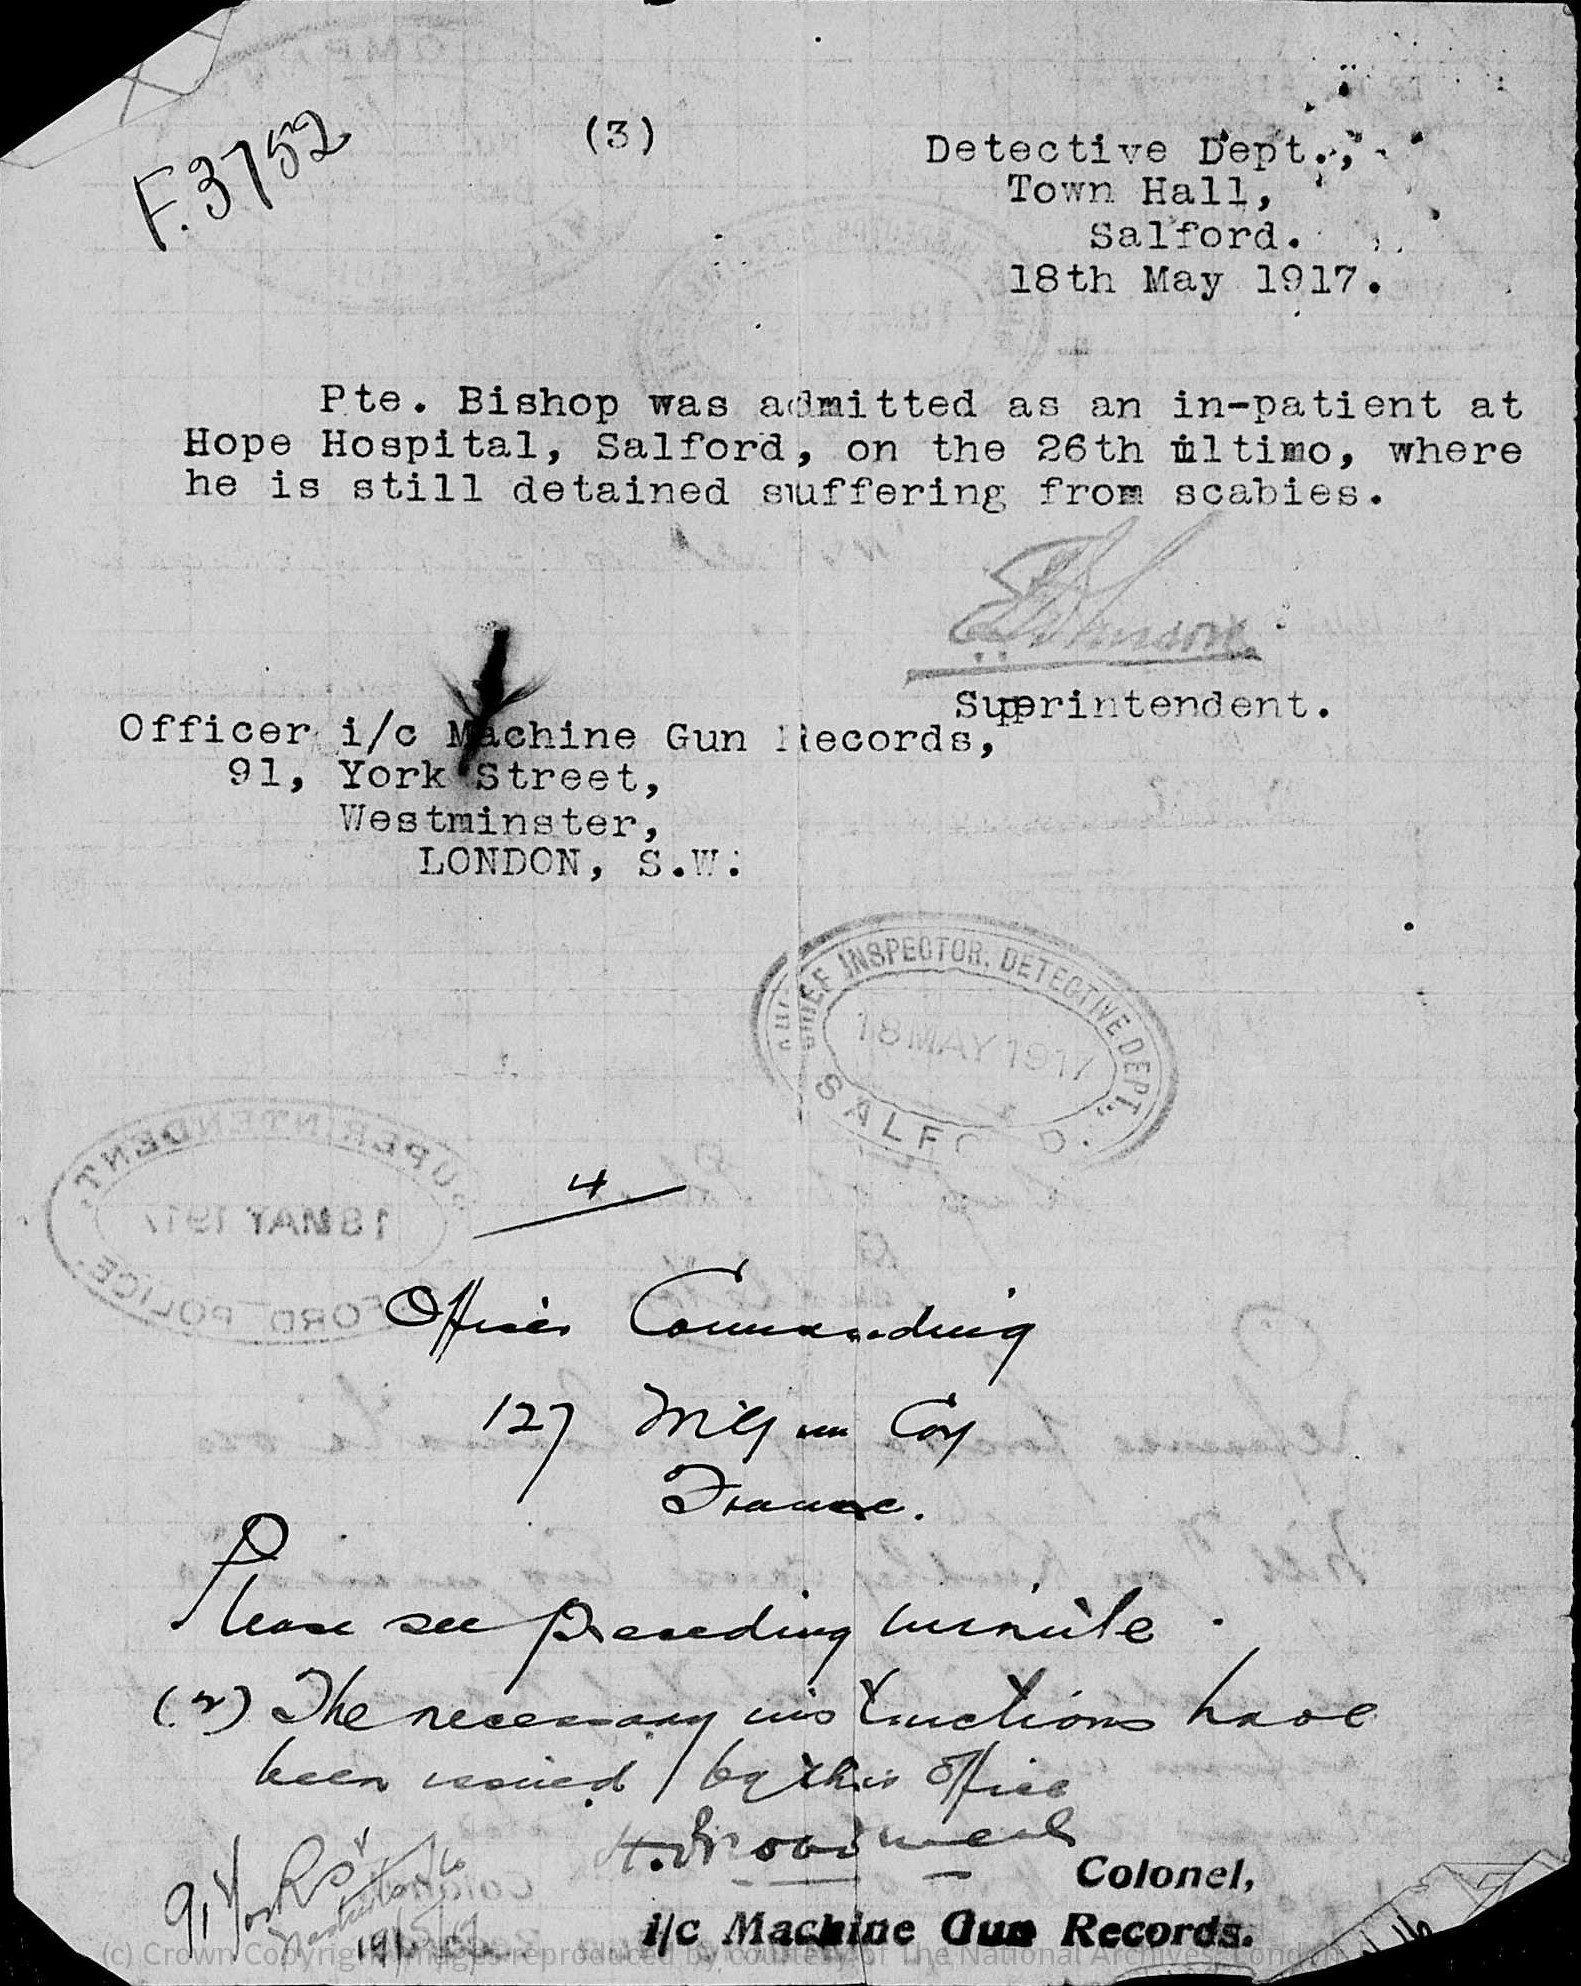 F.3752
(3)
Detective Dept.,
Town Hall,
Salford.
18th May 1917.
Pte. Bishop was admitted as an in-patient at
Hope Hospital, Salford, on the 26th ultimo, where
he is still detained suffering from scabies.
Superintendent.
Officer i/c Machine Gun Records,
91, York Street,
Westminster,
LONDON, S.W.
CHIEF INSPECTOR. DETECTIVE DEPT.
18 MAY 1917
SALFORD.
SUPERINTENDENT.
18 MAY 1917
FORD POLICE.
4
Officer Commanding
127 M'Gun Coy
France.
Please see preceding minute.
(2) The necessary instructions have
been issued by this office
Colonel,
i/c Machine Gun Records.
91 York St
Westminster
19/5/17
(c) Crown Copyright Images reproduced by courtesy of The National Archives, London